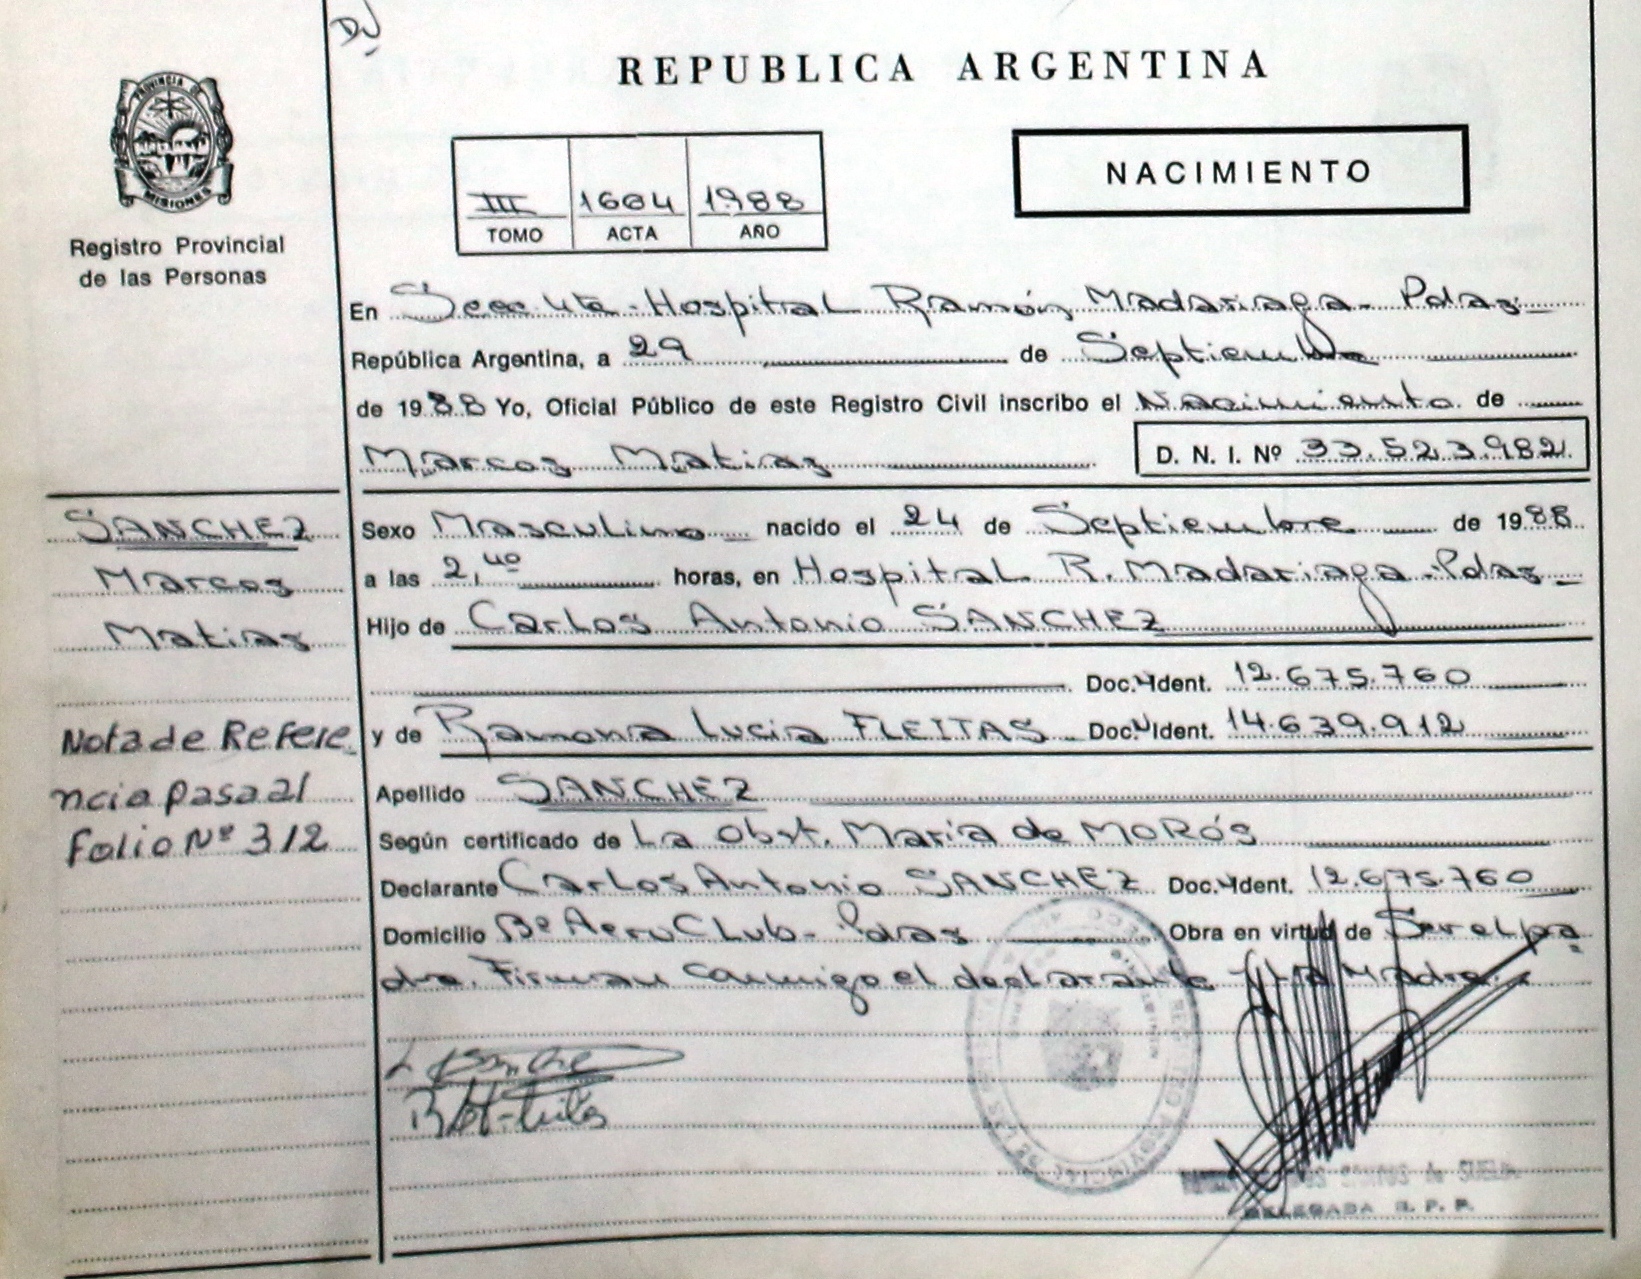 REPUBLICA ARGENTINA
PROVINCIA DE
MISIONES
Registro Provincial
de las Personas
III 1684 1988
TOMO ACTA AÑO
NACIMIENTO
En Secc. 4ta - Hospital Ramón Madariaga - Pdas
República Argentina, a 29 de Septiembre
de 1988 Yo, Oficial Público de este Registro Civil inscribo el Nacimiento de
Marcos Matias D. N. I. Nº 33.523.982
SANCHEZ
Marcos
Matias
Sexo Masculino nacido el 24 de Septiembre de 1988
a las 2,40 horas, en Hospital R. Madariaga - Pdas
Hijo de Carlos Antonio SANCHEZ
Doc. Ident. 12.675.760
y de Ramona Lucia FLEITAS Doc. Ident. 14.639.912
Nota de Refere
ncia pasa al
Folio Nº 312
Apellido SANCHEZ
Según certificado de La Obst. Maria de MORÓS
Declarante Carlos Antonio SANCHEZ Doc. Ident. 12.675.760
Domicilio Bº Aero Club - Pdas Obra en virtud de Ser el pa
dre. Firman conmigo el declarante y la Madre.
DELEGADA R. P. P.